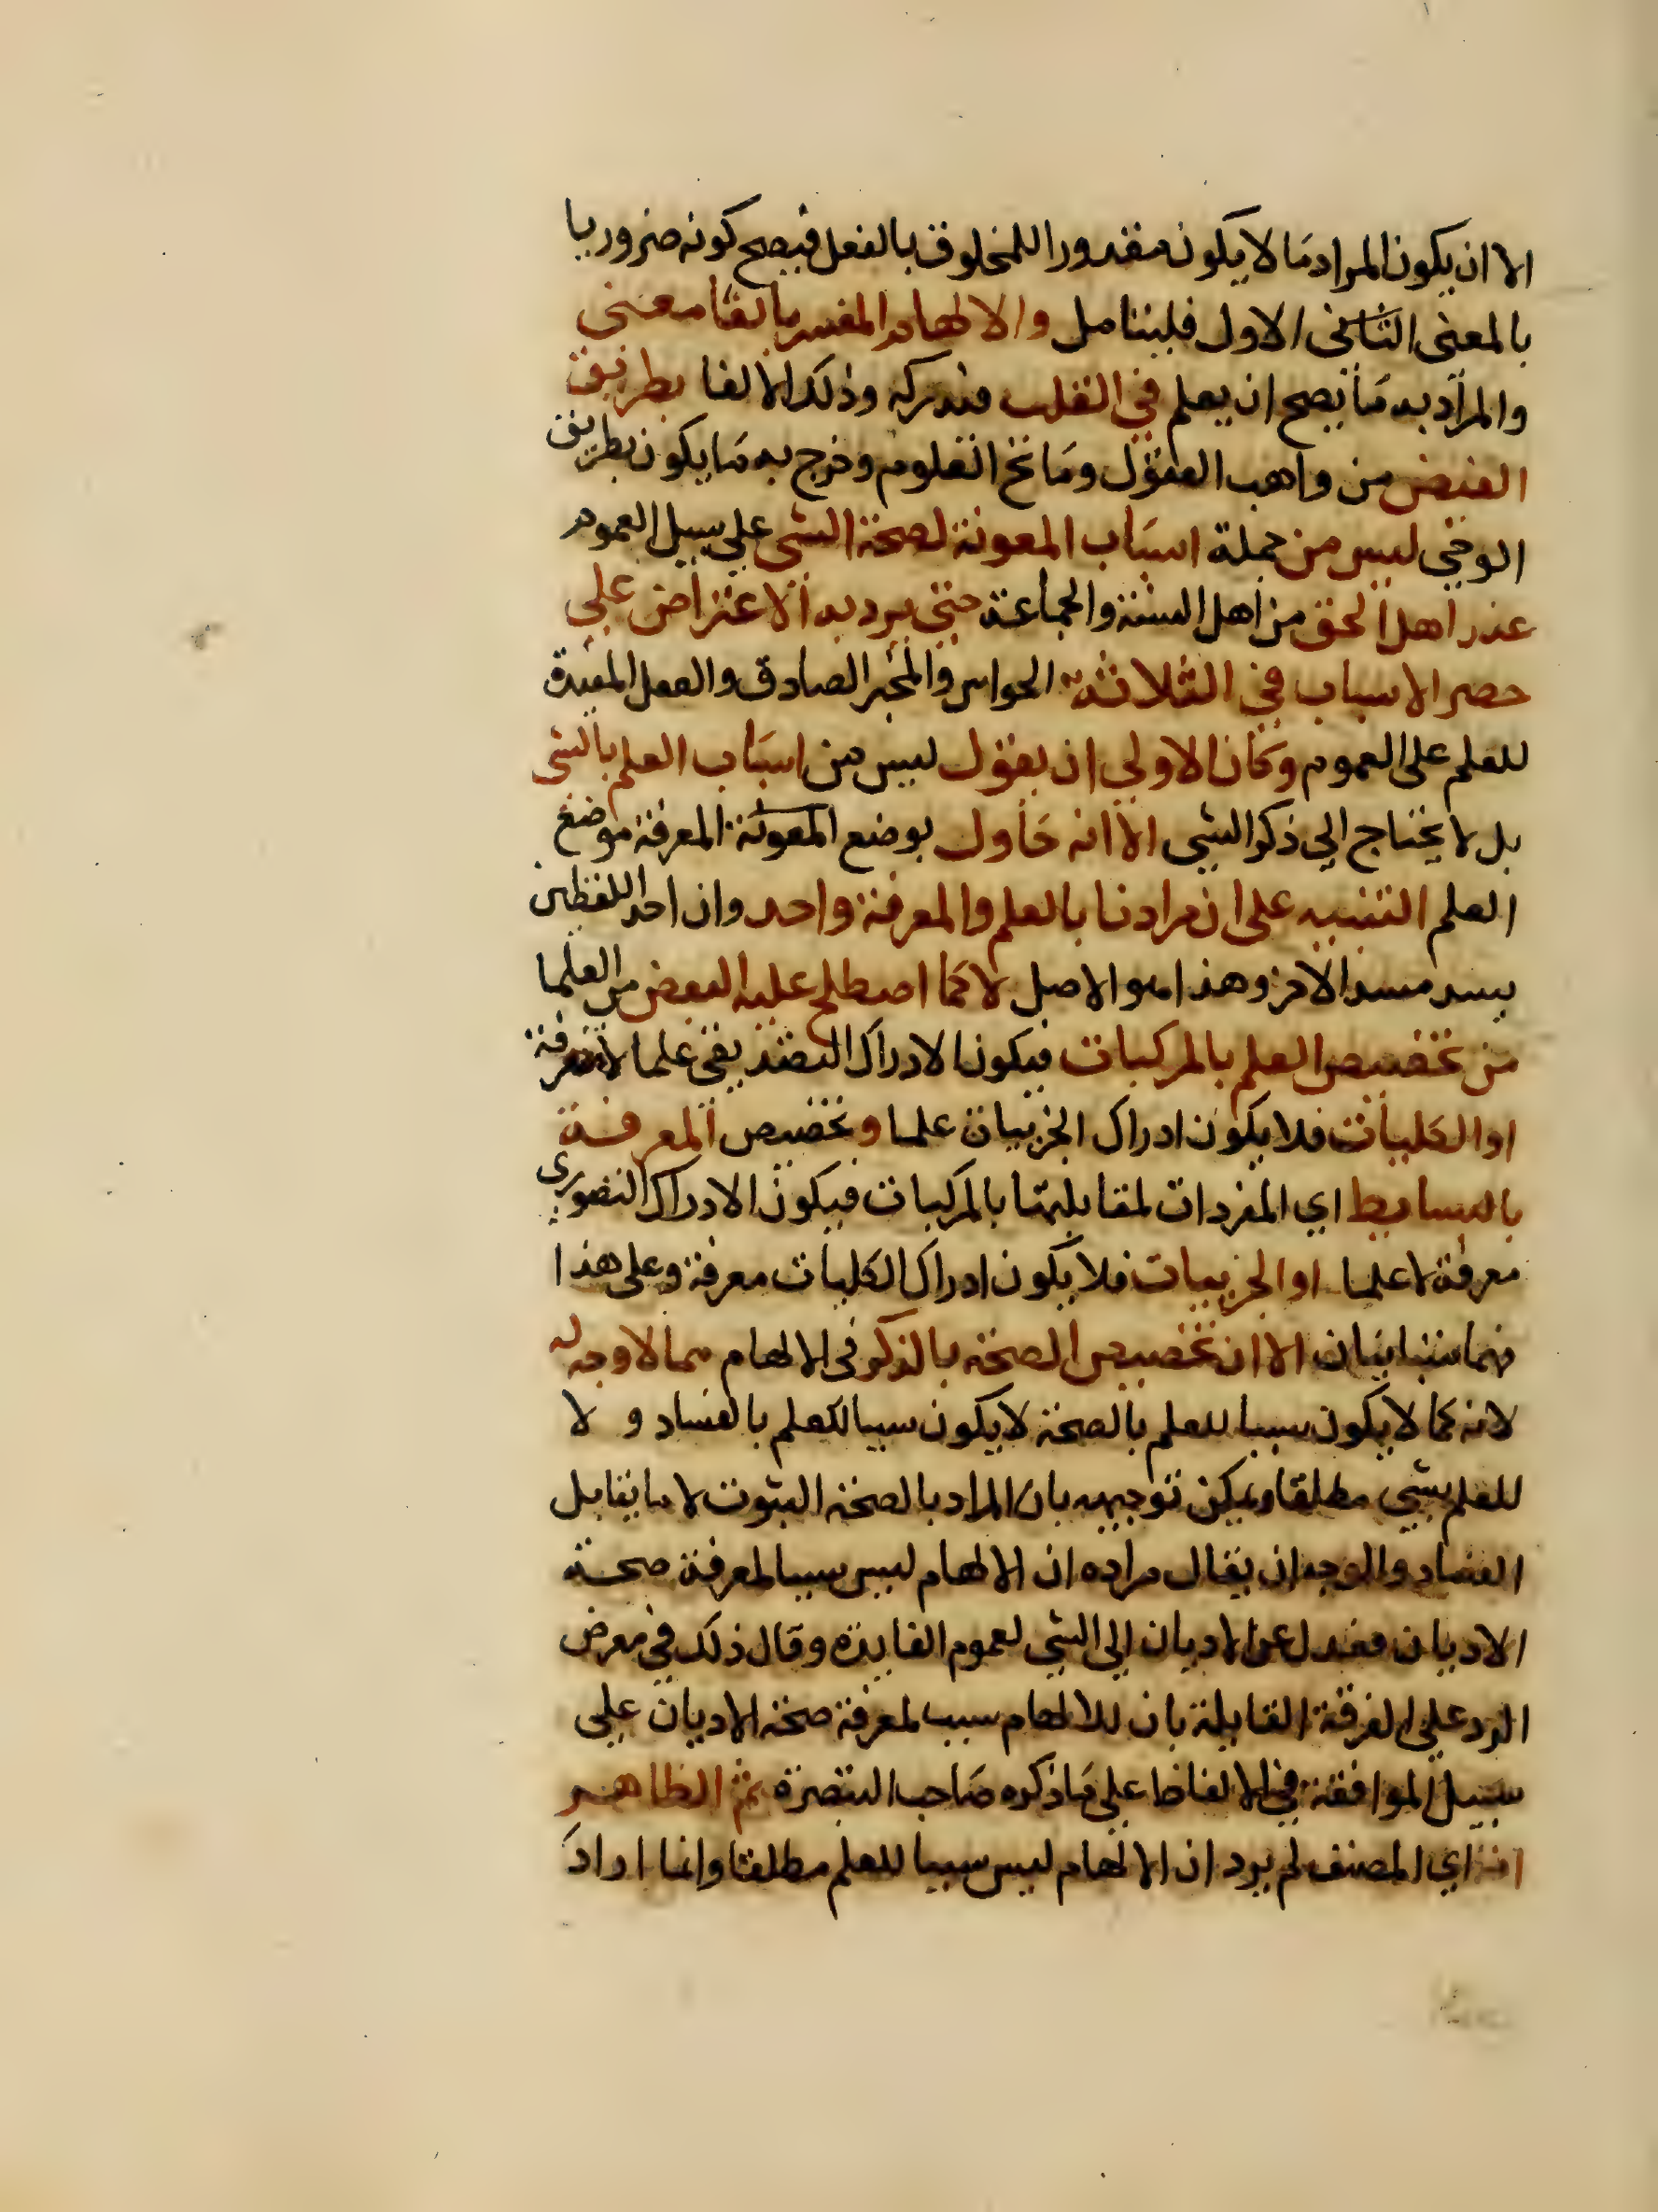 الا ان يكون المراد ما لا يكون مقدورا للمخلوق بالفعل فيصح كونه ضروريا
بالمعنى الثاني الاول فليتامل والالهام المفسر بالقا معنى
والمراد به ما يصح ان يعلم في القلب فيدركه وذلك الالقا بطريق
الفيض من واهب العقول ومانح العلوم وخرج به ما يكون بطريق
الوحي ليس من جملة اسباب المعونة لصحة الشي على سبيل العموم
عند اهل الحق من اهل السنة والجماعة حتى يرد به الاعتراض على
حصر الاسباب في الثلاثة الحواس والخبر الصادق والعقل المفيدة
للعلم على العموم وكان الاولى ان يقول ليس من اسباب العلم بالشي
بل لا يحتاج الى ذكر الشي الا انه حاول بوضع المعونة المعرفة موضع
العلم التنبيه على ان مرادنا بالعلم والمعرفة واحد وان احد اللفظين
يسد مسد الاخر وهذا هو الاصل لا كما اصطلح عليه البعض من العلما
من تخصيص العلم بالمركبات فيكون الادراك التصديقي علما لا معرفة
او الكليات فلا يكون ادراك الجزييات علما وتخصيص المعرفة
بالبسايط اي المفردات لمقابلتها بالمركبات فيكون الادراك التصوري
معرفة لا علما او الجزييات فلا يكون ادراك الكليات معرفة وعلى هذا
فهما متباينان الا ان تخصيص الصحة بالذكر في الالهام مما لا وجه له
لانه كما لا يكون سببا للعلم بالصحة لا يكون سببا للعلم بالفساد و لا
للعلم بشي مطلقا ويمكن توجيهه بان المراد بالصحة الثبوت لا ما يقابل
الفساد والوجه ان يقال مراده ان الالهام ليس سببا لمعرفة صحة
الاديان فعدل عن الاديان الى الشي لعموم الفايدة وقال ذلك في معرض
الرد على الفرقة القايلة بان للالهام سبب لمعرفة صحة الاديان على
سبيل الموافقة في الالفاظ على ما ذكره صاحب التبصرة ثم الظاهر
انه اي المصنف لم يرد ان الالهام ليس سببا للعلم مطلقا وانما اراد